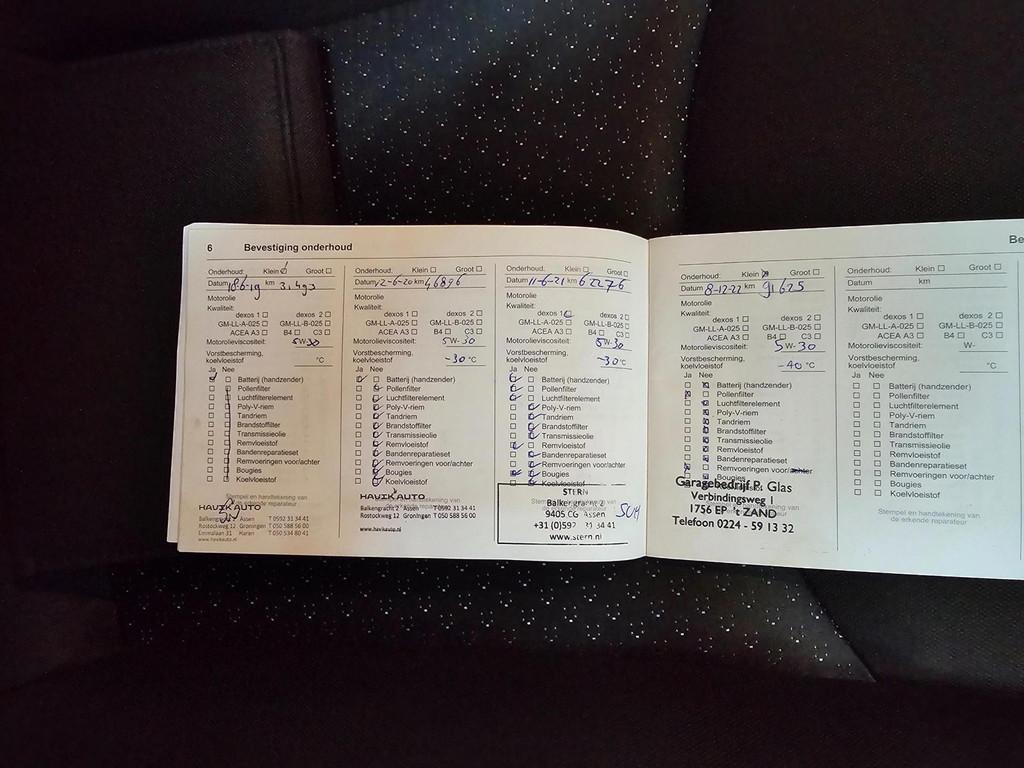 6 Bevestiging onderhoud
Onderhoud: Klein ☑ Groot ☐
Datum 18-6-19 km 31493
Motorolie
Kwaliteit:
dexos 1 ☐ dexos 2 ☐
GM-LL-A-025 ☐ GM-LL-B-025 ☐
ACEA A3 ☐ B4 ☐ C3 ☐
Motorolieviscositeit: 5W-30
Vorstbescherming,
koelvloeistof °C
Ja Nee
Batterij (handzender)
Pollenfilter
Luchtfilterelement
Poly-V-riem
Tandriem
Brandstoffilter
Transmissieolie
Remvloeistof
Bandenreparatieset
Remvoeringen voor/achter
Bougies
Koelvloeistof
Stempel en handtekening van
de erkende reparateur
HAVIK AUTO
Balkengracht 2 Assen T 0592 31 34 41
Rostockweg 12 Groningen T 050 588 56 00
Emmalaan 31 Haren T 050 534 80 41
www.havikauto.nl
Onderhoud: Klein ☐ Groot ☐
Datum 12-6-20 km 46896
Motorolie
Kwaliteit:
dexos 1 ☐ dexos 2 ☐
GM-LL-A-025 ☐ GM-LL-B-025 ☐
ACEA A3 ☐ B4 ☐ C3 ☐
Motorolieviscositeit: 5W-30
Vorstbescherming,
koelvloeistof -30 °C
Ja Nee
Batterij (handzender)
Pollenfilter
Luchtfilterelement
Poly-V-riem
Tandriem
Brandstoffilter
Transmissieolie
Remvloeistof
Bandenreparatieset
Remvoeringen voor/achter
Bougies
Koelvloeistof
HAVIK AUTO
Balkengracht 2 Assen T 0592 31 34 41
Rostockweg 12 Groningen T 050 588 56 00
www.havikauto.nl
Onderhoud: Klein ☐ Groot ☐
Datum 11-6-21 km 62276
Motorolie
Kwaliteit:
dexos 1 ☑ dexos 2 ☐
GM-LL-A-025 ☐ GM-LL-B-025 ☐
ACEA A3 ☐ B4 ☐ C3 ☐
Motorolieviscositeit: 5W-30
Vorstbescherming,
koelvloeistof -30 °C
Ja Nee
Batterij (handzender)
Pollenfilter
Luchtfilterelement
Poly-V-riem
Tandriem
Brandstoffilter
Transmissieolie
Remvloeistof
Bandenreparatieset
Remvoeringen voor/achter
Bougies
Koelvloeistof
STERN
Balkengracht 2
9405 CG Assen
+31 (0)592 31 34 41
www.stern.nl
Be
Onderhoud: Klein ☒ Groot ☐
Datum 8-12-22 km 91625
Motorolie
Kwaliteit:
dexos 1 ☐ dexos 2 ☐
GM-LL-A-025 ☐ GM-LL-B-025 ☐
ACEA A3 ☐ B4 ☐ C3 ☐
Motorolieviscositeit: 5W-30
Vorstbescherming,
koelvloeistof -40 °C
Ja Nee
Batterij (handzender)
Pollenfilter
Luchtfilterelement
Poly-V-riem
Tandriem
Brandstoffilter
Transmissieolie
Remvloeistof
Bandenreparatieset
Remvoeringen voor/achter
Bougies
Koelvloeistof
Garagebedrijf P. Glas
Verbindingsweg 1
1756 EP 't ZAND
Telefoon 0224 - 59 13 32
Onderhoud: Klein ☐ Groot ☐
Datum km
Motorolie
Kwaliteit:
dexos 1 ☐ dexos 2 ☐
GM-LL-A-025 ☐ GM-LL-B-025 ☐
ACEA A3 ☐ B4 ☐ C3 ☐
Motorolieviscositeit: W-
Vorstbescherming,
koelvloeistof °C
Ja Nee
Batterij (handzender)
Pollenfilter
Luchtfilterelement
Poly-V-riem
Tandriem
Brandstoffilter
Transmissieolie
Remvloeistof
Bandenreparatieset
Remvoeringen voor/achter
Bougies
Koelvloeistof
Stempel en handtekening van
de erkende reparateur